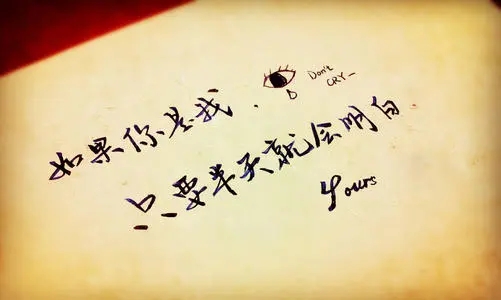 如果你是我.
Don't
CRY-
只要半天就会明白
yours